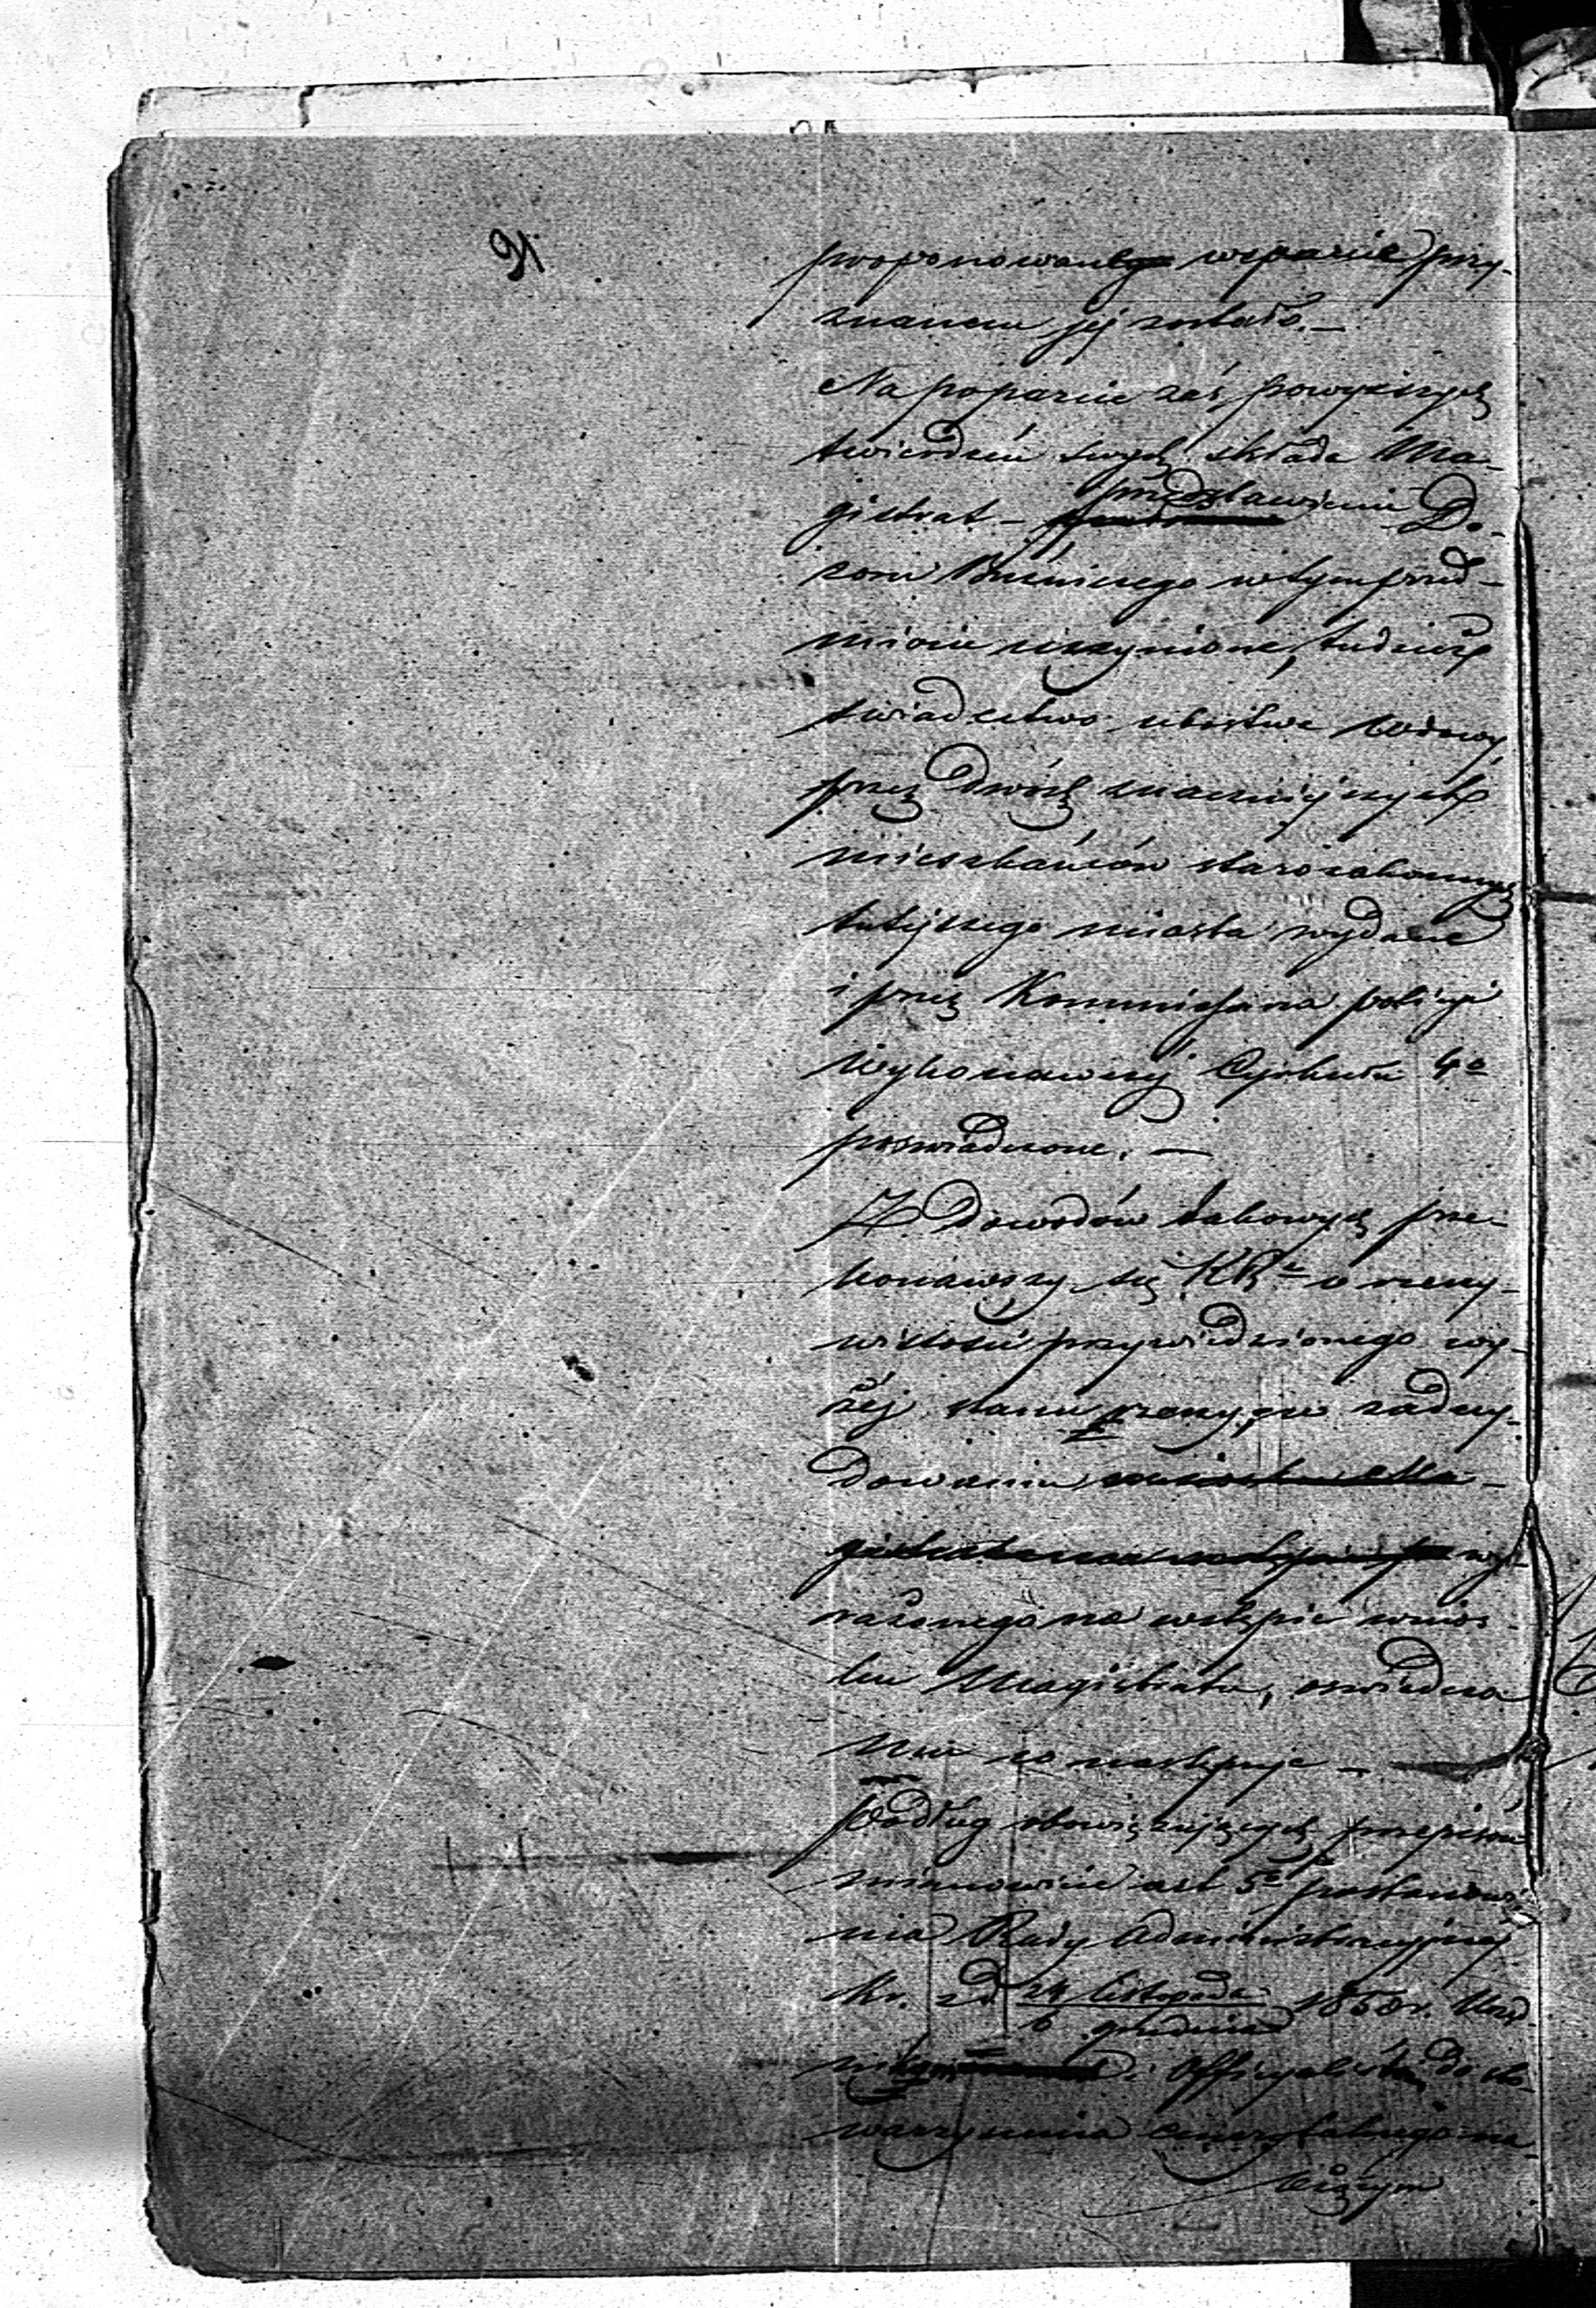 91
proponowane wsparcie przy-
znanem jej zostało. —
Na poparcie zaś powyższych
twierdzeń swych składa Ma-
gistrat — przedstawienie Do-
zoru Bóżniczego w tym przed-
miocie uczynione, tudzież
świadectwo ubóstwa wdowy
przez dwóch znaczniejszych
mieszkańców starozakonnych
tutejszego miasta wydane
i przez Kommissarza policyi
wykonawczej Cyrkułu 4o
poświadczone. —
Z dowodów takowych prze-
konawszy się KR o rzeczy-
wistości przywiedzionego wy-
żej stanu rzeczy, co zadecy-
dowania
wy-
rażonego na wstępie wnios-
ku Magistratu, oświadcza
co następuje —
Podług obowiązujących przepisów
mianowicie art 5o postanowie
nia Rady Administracyjnej
Kr. z d. 24 listopada 1858 r. Urzęd-
6 grudnia
i Officyaliści do sto-
warzyszenia emerytalnego na-
leżącym